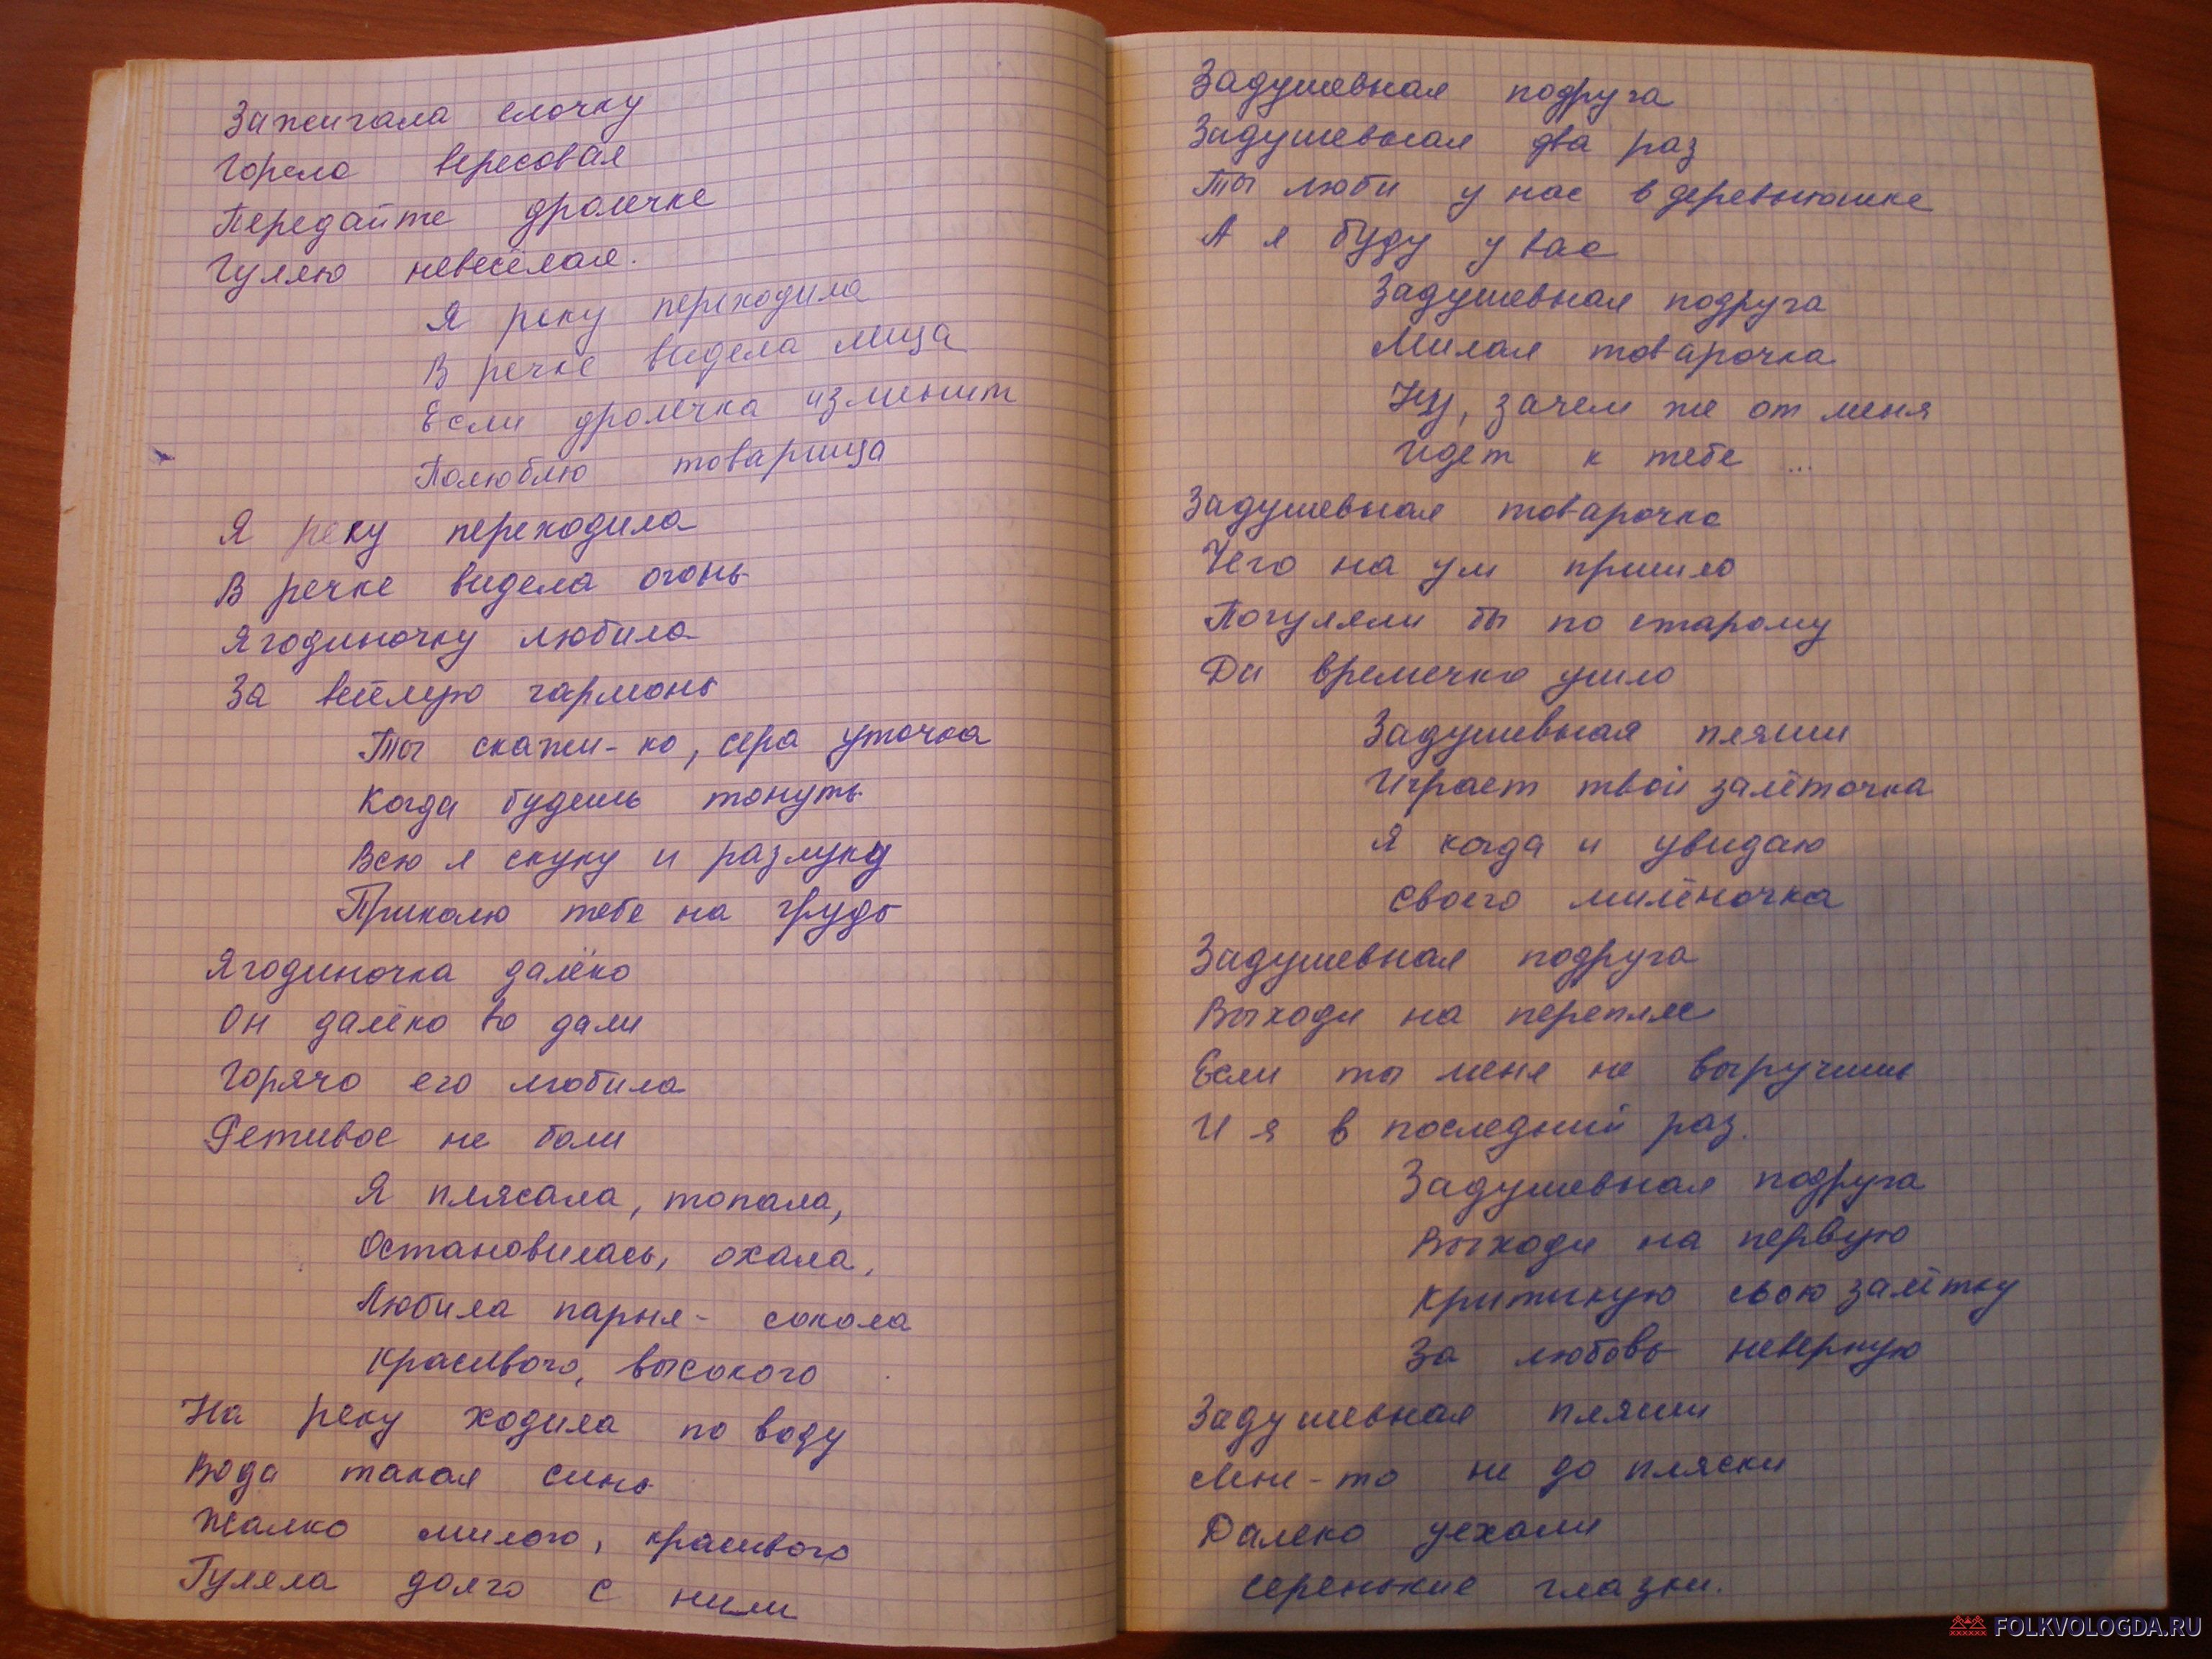 Зажигала елочку
Горела вересовая
Передайте дролечке
Гуляю невесёлая.
Я реку переходила
В речке видела лица
Если дролечка изменит
Полюблю товарища
Я реку переходила
В речке видела огонь
Ягодиночку любила
За гармонь
Ты скажи-ко, сера уточка
Когда будешь тонуть
Всю я скуку и разлуку
Приколю тебе на грудь
Ягодиночка далёко
Он далёко во дали
Горячо его любила
Ретивое не боли
Я плясала, топала,
Остановилась, охала,
Любила парня-сокола
Красивого, высокого
На реку ходила по воду
Вода такая синь
Жалко милого, красивого
Гуляла долго с ним
Задушевная подруга
Задушевная два раз
Ты люби у нас в деревнюшке
А я буду у вас
Задушевная подруга
Милая товарочка
Ну, зачем же от меня
Идет к тебе ...
Задушевная товарочка
Чего на ум пришло
Погуляли бы по старому
Да времечко ушло
Задушевная пляши
Играет твой залёточка
Я когда и увидаю
Своего милёночка
Задушевная подруга
Выходи на перепляс
Если ты меня не выручишь
И я в последний раз.
Задушевная подруга
Выходи на первую
Критикую свою залётку
За любовь неверную
Задушевная пляши
Мне-то не до пляски
Далеко уехали
Серенькие глазки.
FOLKVOLOGDA.RU